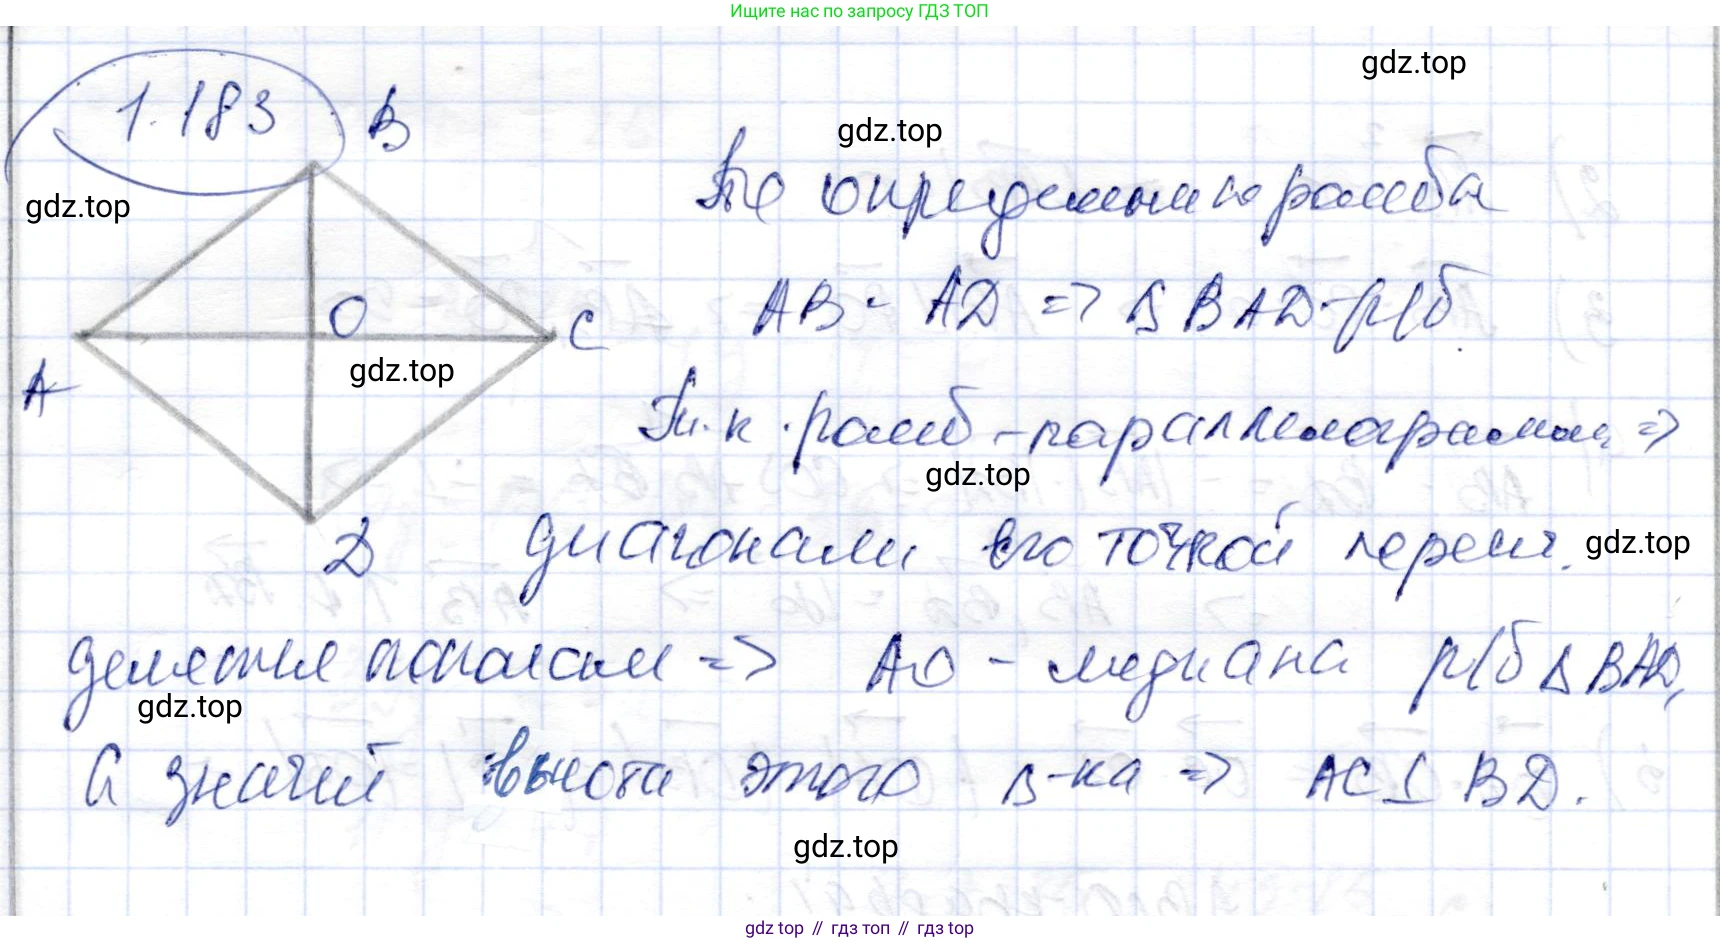 Ищите нас по запросу ГДЗ ТОП
1.183
gdz.top
B
gdz.top
gdz.top
По определению ромба
AB = AD => Δ BAD - р/б
O
C
A
gdz.top
Т.к. ромб - параллелограмм =>
gdz.top
D
диагонали его точкой перес.
gdz.top
делятся пополам => AO - медиана р/б Δ BAD,
gdz.top
а значит высота этого Δ-ка => AC ⊥ BD.
gdz.top
gdz.top // гдз топ // гдз top